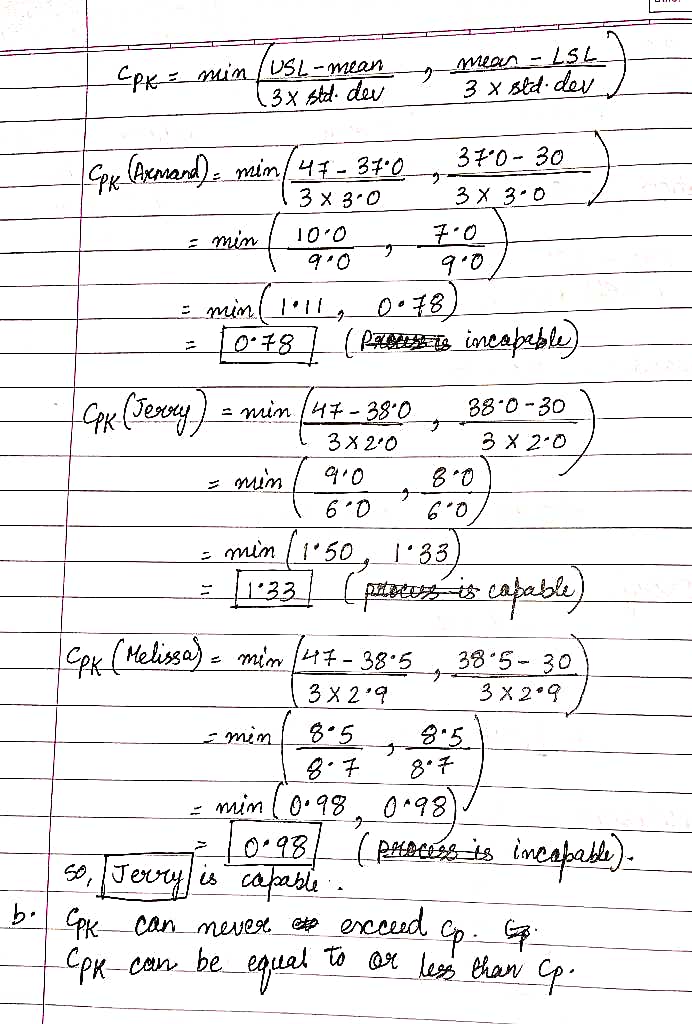 CPK = min (USL - mean / 3 x std. dev , mean - LSL / 3 x std. dev)
CPK (Armand) = min (47 - 37.0 / 3 x 3.0 , 37.0 - 30 / 3 x 3.0)
= min (10.0 / 9.0 , 7.0 / 9.0)
= min (1.11, 0.78)
= 0.78 (Process is incapable)
CPK (Jerry) = min (47 - 38.0 / 3 x 2.0 , 38.0 - 30 / 3 x 2.0)
= min (9.0 / 6.0 , 8.0 / 6.0)
= min (1.50, 1.33)
= 1.33 (process is capable)
CPK (Melissa) = min (47 - 38.5 / 3 x 2.9 , 38.5 - 30 / 3 x 2.9)
= min (8.5 / 8.7 , 8.5 / 8.7)
= min (0.98, 0.98)
= 0.98 (process is incapable).
so, Jerry is capable.
b. CPK can never exceed Cp.
CPK can be equal to or less than Cp.